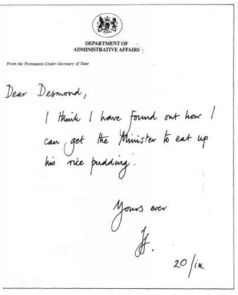 DEPARTMENT OF
ADMINISTRATIVE AFFAIRS
From the Permanent Under-Secretary of State
Dear Desmond,
I think I have found out how I
can get the Minister to eat up
his rice pudding.
Yours ever
H.
20/ix